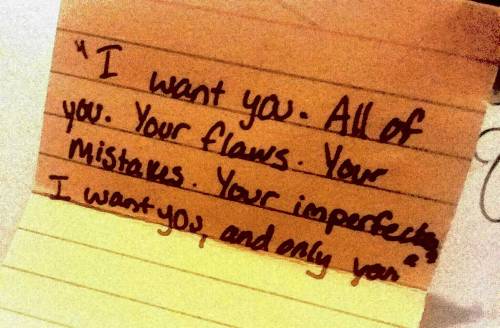 "I want you. All of
you. Your flaws. Your
mistakes. Your
I want you, and only you"